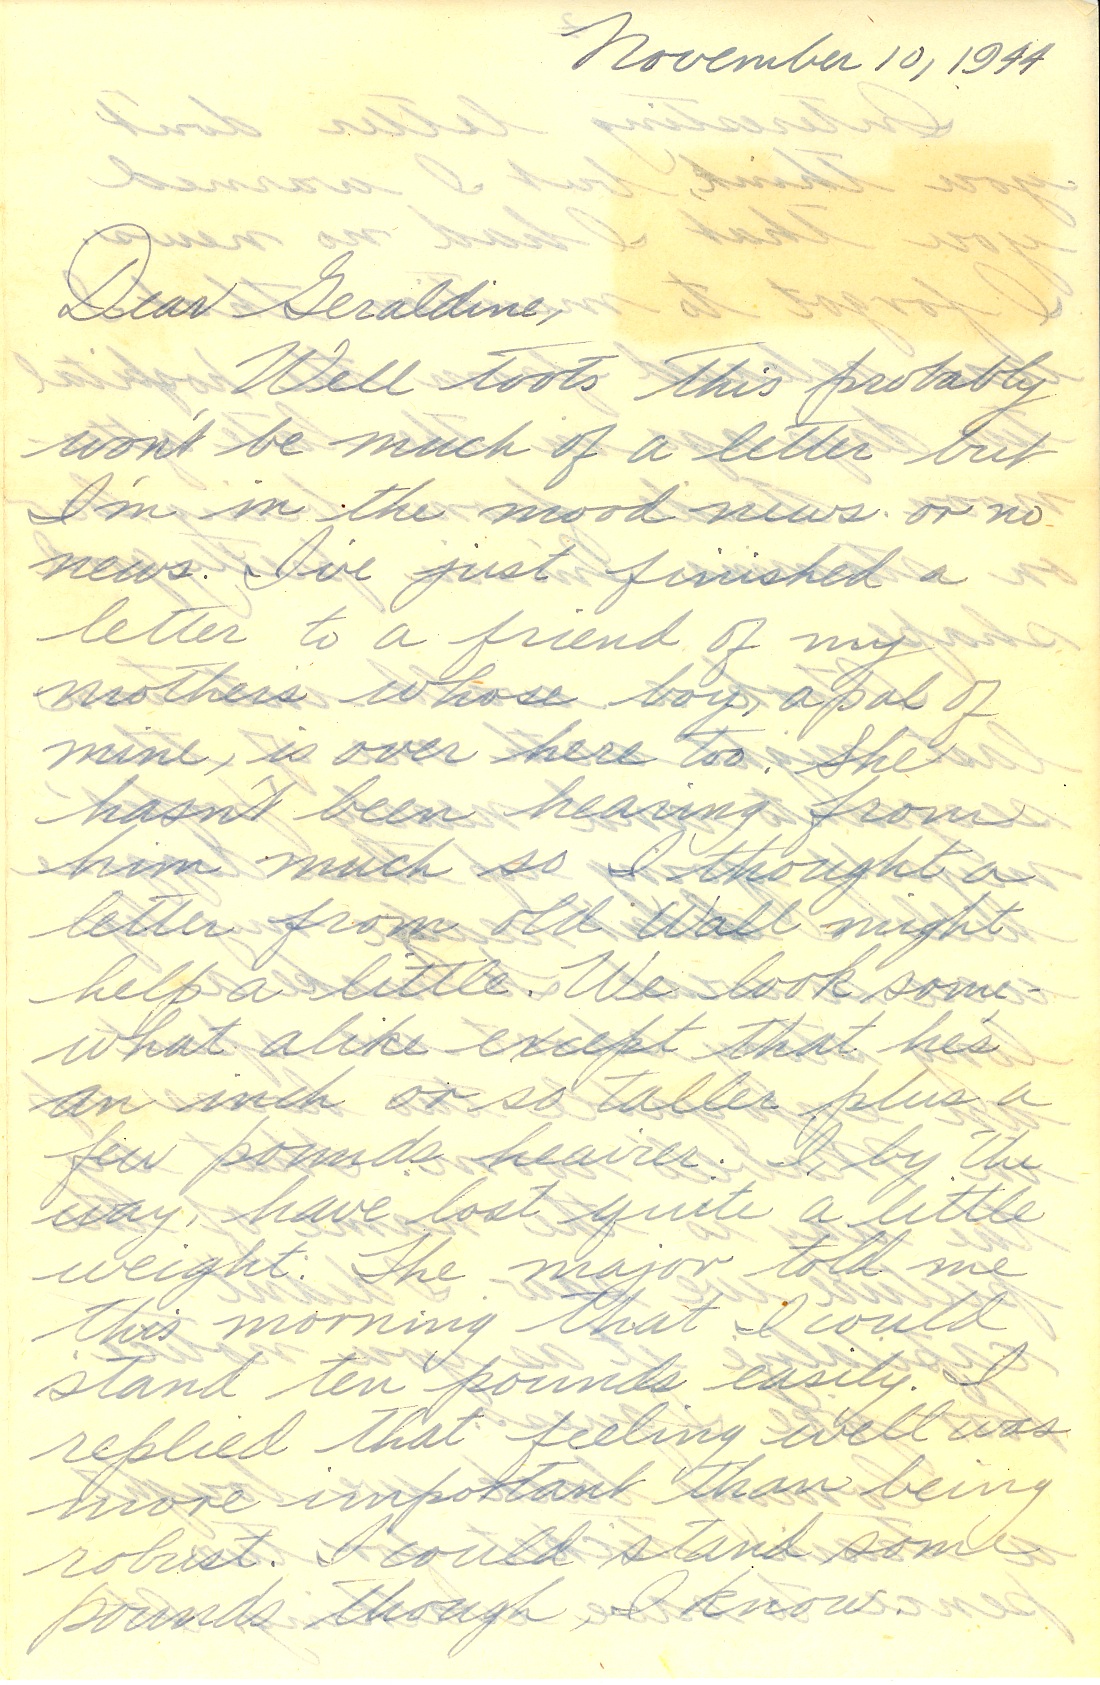 November 10, 1944
Dear Geraldine,
Well toots this probably
won't be much of a letter but
I'm in the mood news or no
news. I've just finished a
letter to a friend of my
mothers whose boy, a pal of
mine, is over here too. She
hasn't been hearing from
him much so I thought a
letter from old Wall might
help a little. We look some-
what alike except that he's
an inch or so taller plus a
few pounds heavier. I, by the
way, have lost quite a little
weight. The major told me
this morning that I could
stand ten pounds easily. I
replied that feeling well was
more important than being
robust. I could stand some
pounds though, I know.